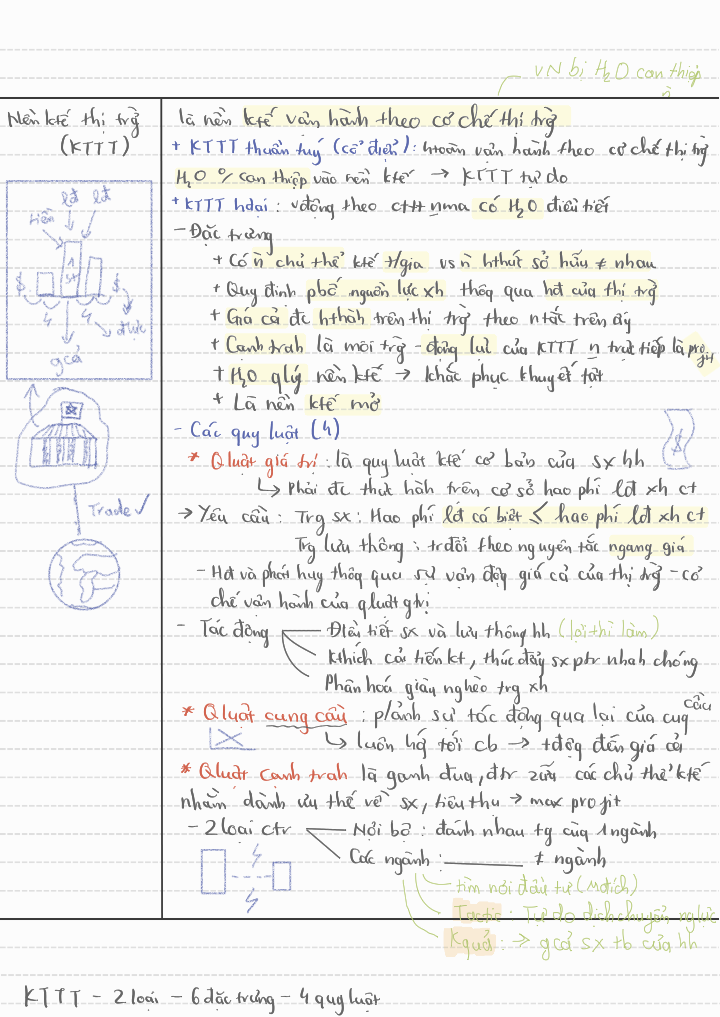 VN bị H₂O can thiệp
Nền ktế thị trg
(KTTT)
lđ lđ
tiền
1
sx
$ $
4 4
đ.lực
gcả
Trade ✓
là nền ktế vận hành theo cơ chế thị trg
+ KTTT thuần tuý (cổ điển): htoàn vận hành theo cơ chế thị trg
H₂O % can thiệp vào nền ktế → KTTT tự do
+ KTTT hđại : vđộng theo cttt nma có H₂O điều tiết
- Đặc trưng
+ Có n chủ thể ktế t/gia vs n hthức sở hữu ≠ nhau
+ Quy định phbổ nguồn lực xh thôg qua hđ của thị trg
+ Giá cả đc hthàh trên thị trg theo ntắc trên ấy
+ Cạnh trah là môi trg - động lực của KTTT n trực tiếp là pro
+ H₂O qlý nền ktế → khắc phục khuyết tật
+ Là nền ktế mở
- Các quy luật (4)
* Qluật giá trị : là quy luật ktế cơ bản của sx hh
↳ Phải đc thực hàh trên cơ sở hao phí lđ xh ct
→ Yêu cầu : Trg sx : Hao phí lđ cá biệt ≤ hao phí lđ xh ct
Trg lưu thông : trđổi theo nguyên tắc ngang giá
- Hđ và phát huy thôg qua sự vận độg giá cả của thị trg - cơ
chế vận hành của qluật gtrị
- Tác động
Điều tiết sx và lưu thông hh (lời thì làm)
Kthích cải tiến kt, thúc đẩy sx ptr nhah chóng
Phân hoá giàu nghèo trg xh
* Qluật cung cầu : p/ánh sự tác động qua lại của cug cầu
↳ luôn hg tới cb → tđộg đến giá cả
* Qluật cạnh trah là ganh đua, đtr giữa các chủ thể ktế
nhằm dành ưu thế về sx, tiêu thụ → max profit
- 2 loại ctr
Nội bộ : đánh nhau tg cùg 1 ngành
Các ngành : ≠ ngành
tìm nơi đầu tư (Mđích)
Tactic : Tự do dịch chuyển nglực
Kquả : → gcả sx tb của hh
KTTT - 2 loại - 6 đặc trưng - 4 quy luật